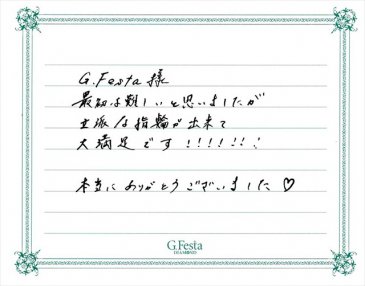 G.Festa様
最初は難しいと思いましたが
立派な指輪が出来て
大満足です!!!!!!!
本当にありがとうございました♡
G.Festa
DIAMOND